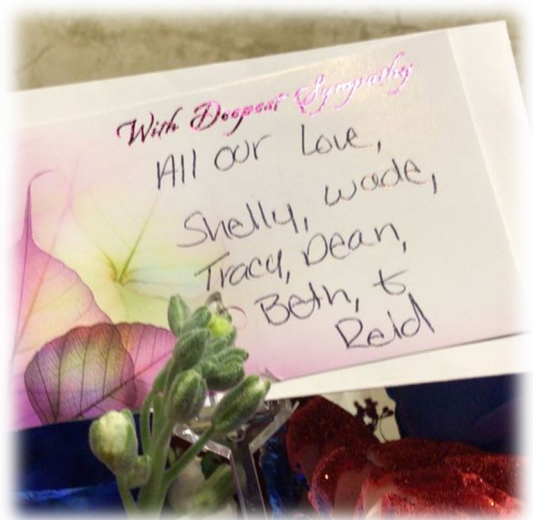 With Deepest Sympathy
All our Love,
Shelly, Wade,
Tracy, Dean,
Beth, &
Reid